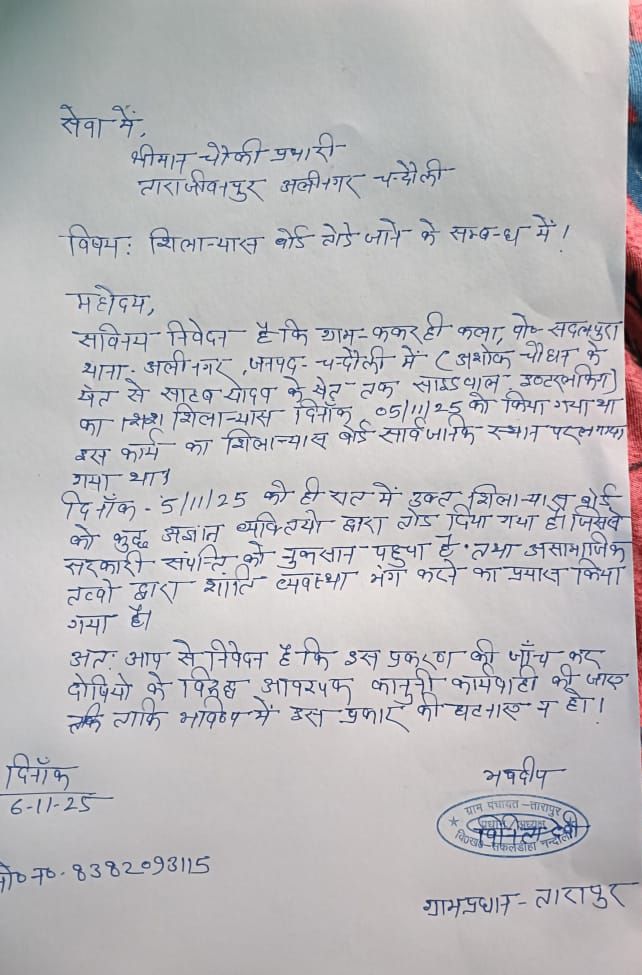 सेवा में,
श्रीमान चौकी प्रभारी
ताराजीवनपुर अलीनगर चन्दौली
विषय: शिलान्यास बोर्ड तोडे जाने के सम्बन्ध में!
महोदय,
सविनय निवेदन है कि ग्राम-ककरही कला, पो० सदलपुरा
थाना- अलीनगर, जनपद- चन्दौली में (अशोक चौहान के
खेत से साहब यादव के खेत तक साइडवाल - इण्टरलाकिंग)
का शिलान्यास दिनाँक 05/11/25 को किया गया था
इस कार्य का शिलान्यास बोर्ड सार्वजनिक स्थान पर लगाया
गया था।
दिनाँक - 5/11/25 को ही रात में उक्त शिलान्यास बोर्ड
को कुछ अज्ञात व्यक्तियो द्वारा तोड दिया गया है। जिससे
सरकारी संपत्ति को नुकसान पहुचा है. तथा असामाजिक
तत्वो द्वारा शांति व्यवस्था भंग करने का प्रयास किया
गया है।
अत: आप से निवेदन है कि इस प्रकरण की जाँच कर
दोषियो के विरुद्ध आवश्यक कानुनी कार्यवाही की जाए
ताकि भविष्य में इस प्रकार की घटनाए न हो!
दिनाँक
6-11-25
भवदीप
ग्राम पंचायत -तारापुर
प्रधान/अध्यक्ष
वि०ख०-सकलडीहा चन्दौली
मो० न०- 8382093115
ग्रामप्रधान- तारापुर